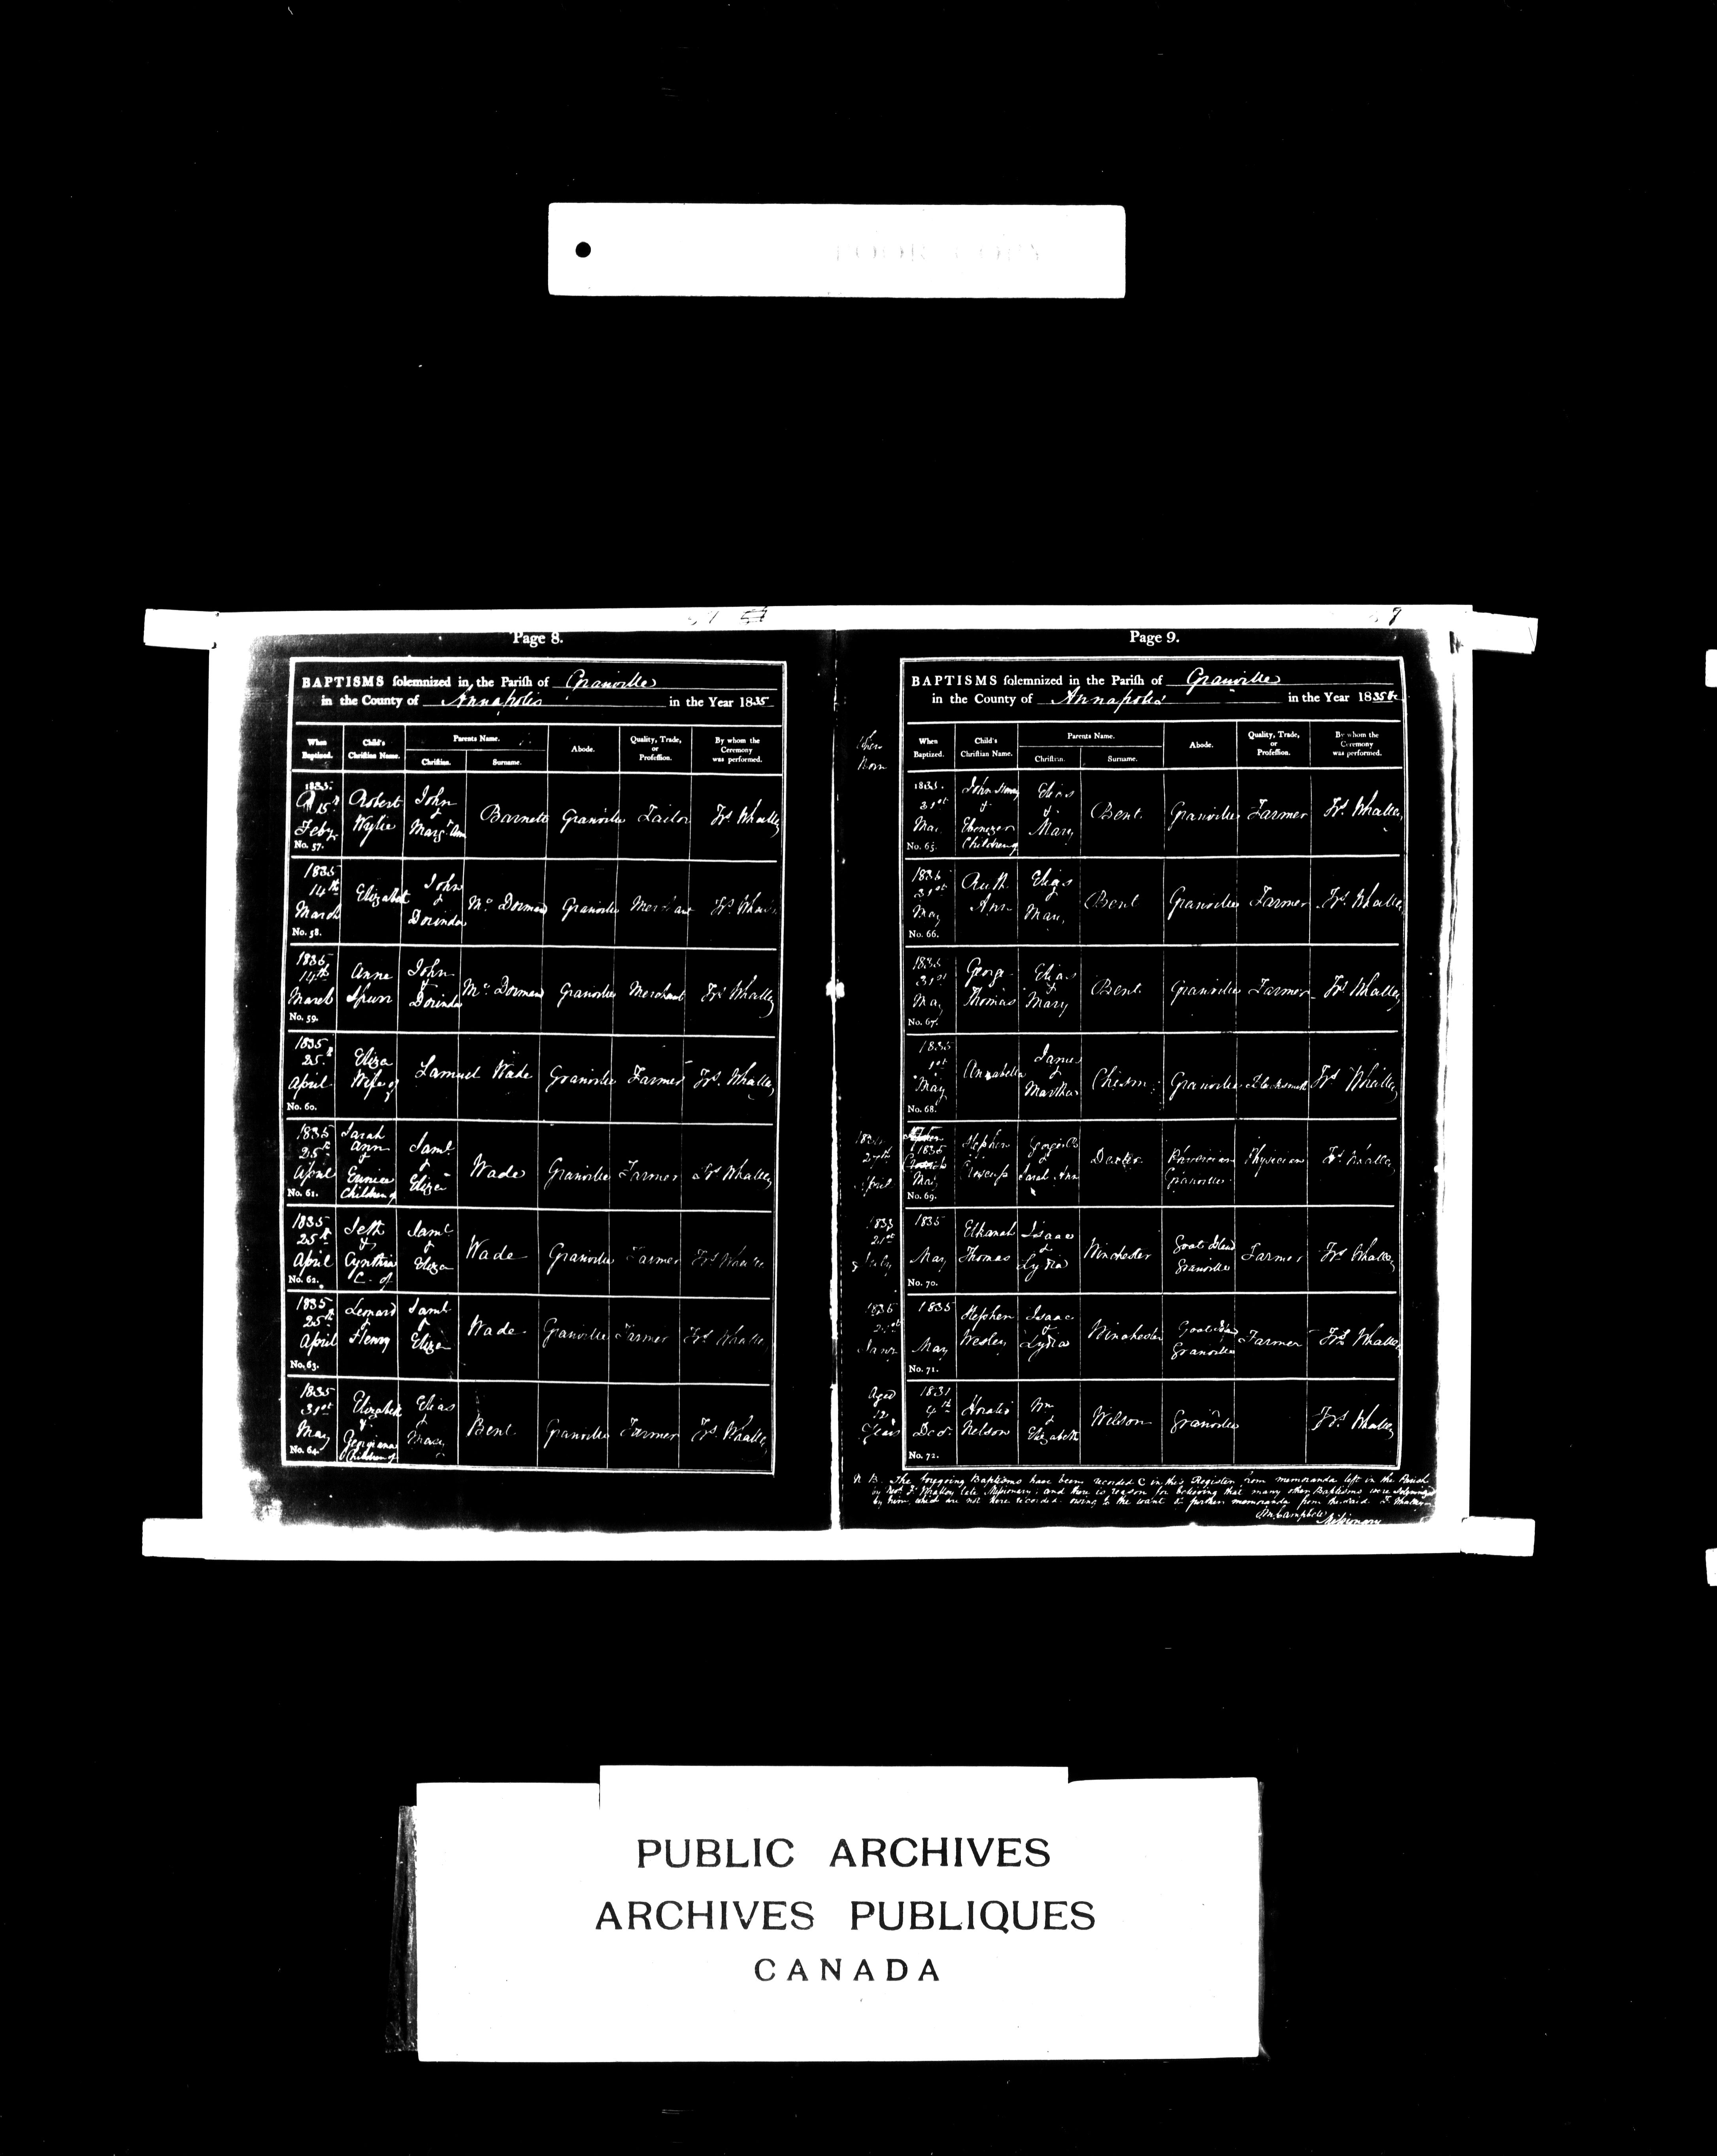 POOR COPY
Page 8.
BAPTISMS solemnized in the Parish of Granville
in the County of Annapolis in the Year 1835
When Baptized. Child's Christian Name. Parents Name. Christian. Surname. Abode. Quality, Trade, or Profession. By whom the Ceremony was performed.
1835. 15th Feby. No. 57. Robert Wylie John & Margt Ann Barnett Granville Tailor Frs Whalley
1835 14th March No. 58. Elizabeth John & Dorinda McDormand Granville Merchant Frs Whalley
1835 14th March No. 59. Anne Spurr John & Dorinda McDormand Granville Merchant Frs Whalley
1835 25th April No. 60. Eliza Wife of Samuel Wade Granville Farmer Frs. Whalley
1835 25th April No. 61. Sarah Ann & Eunice Children of Saml & Eliza Wade Granville Farmer Frs Whalley
1835 25th April No. 62. Seth & Cynthia C. of Saml & Eliza Wade Granville Farmer Frs Whalley
1835 25th April No. 63. Leonard & Henry Saml & Eliza Wade Granville Farmer Frs Whalley
1835 31st May No. 64. Elizabeth & Georgiana Children of Elias & Mary Bent Granville Farmer Frs. Whalley
Page 9.
BAPTISMS solemnized in the Parish of Granville
in the County of Annapolis in the Year 1835 &c
When Born
When Baptized. Child's Christian Name. Parents Name. Christian. Surname. Abode. Quality, Trade, or Profession. By whom the Ceremony was performed.
1835. 31st May No. 65. John Henry & Ebenezer Children of Elias & Mary Bent Granville Farmer Frs Whalley
1835 31st May No. 66. Ruth Ann Elias & Mary Bent Granville Farmer Frs. Whalley
1835 31st May No. 67. George Thomas Elias & Mary Bent Granville Farmer Frs Whalley
1835 1st May No. 68. Annabella James & Martha Granville Blacksmith Frs Whalley
27th April 1835 May No. 69. Stephen George & Sarah Ann Dexter Physician Granville Physician Frs Whalley
1833 21st July 1835 May No. 70. Elkanah Thomas Isaac & Lydia Winchester Goat Island Granville Farmer Frs Whalley
1835 May No. 71. Stephen Wesley Isaac & Lydia Winchester Goat Island Granville Farmer Frs Whalley
Aged 12 Years 1831 4th Decr No. 72. Horatio Nelson Wm & Elizabeth Wilson Granville Frs Whalley
N.B. The foregoing Baptisms have been recorded in this Register from memoranda left in the Parish
by Revd F. Whalley late Missionary; and there is reason for believing that many other Baptisms were solemnized
by him, which are not here recorded owing to the want of further memoranda from the said F. Whalley
Wm Campbell
Missionary
PUBLIC ARCHIVES
ARCHIVES PUBLIQUES
CANADA